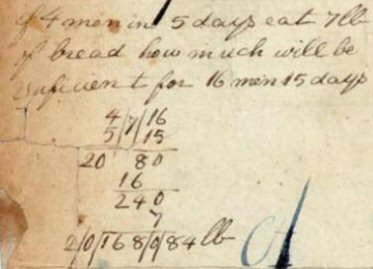 if 4 men in 5 days eat 7 lb
of bread how much will be
suficient for 16 men 15 days
4/7/16
5/ /15
20 80
16
240
7
2/0/168/0/84 lb